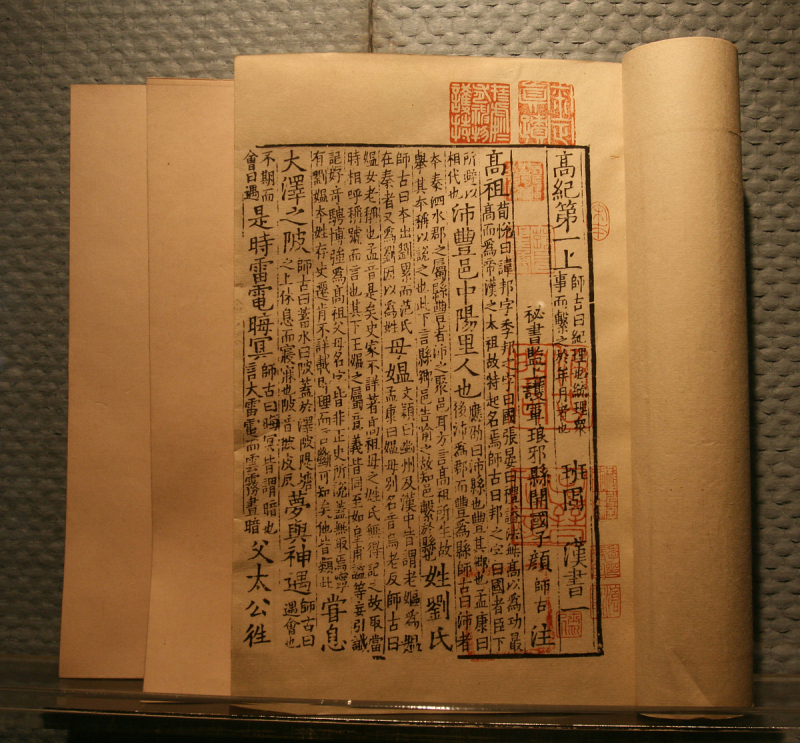 高紀第一上 師古曰紀理也統理衆事而繫之於年月者也 班固 漢書一
祕書監上護軍琅邪縣開國子顏 師古 注
高祖 荀悅曰諱邦字季邦之字曰國張晏曰禮謚法無高以為功最高而為帝漢之太祖故特起名焉師古曰邦之字曰國者臣下
所避以相代也 沛豐邑中陽里人也 應劭曰沛縣也豐其鄉也孟康曰後沛為郡而豐為縣師古曰沛者
本秦泗水郡之屬縣豐者沛之聚邑耳方言高祖所生故舉其本稱以說之也此下言縣鄉邑告喻之故知邑繫於縣 姓劉氏
師古曰本出劉累而范氏在秦者又為劉因以為姓 母媼 文穎曰幽州及漢中皆謂老嫗為媼孟康曰媼母別名音烏老反師古曰
媼女老稱也孟音是矣史家不詳著高祖母之姓氏無得記之故取當時相呼稱號而言也其下王媼之屬意義皆同至如皇甫謐等妄引讖
記好奇騁博強為高祖父母名字皆非正史所說蓋無取焉寧有劉媼本姓存史遷肯不詳載即理而言斷可知矣他皆類此 嘗息
大澤之陂 師古曰蓄水曰陂蓋於澤陂隄塘之上休息而寢寐也陂音彼皮反 夢與神遇 師古曰遇會也
不期而會曰遇 是時雷電晦冥 師古曰晦冥皆謂暗也言大雷電而雲霧晝暗 父太公往